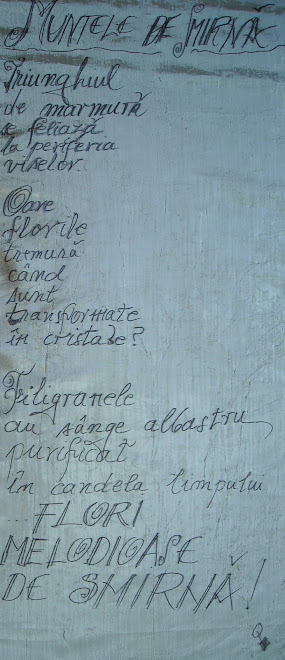 MUNTELE DE SMIRNĂ
Triunghiul
de marmură
se feliază
la periferia
viselor.
Oare
florile
tremură
când
sunt
transformate
în cristale?
Filigranele
au sânge albastru
purificat
în candela timpului
... FLORI
MELODIOASE
DE SMIRNĂ!
Q